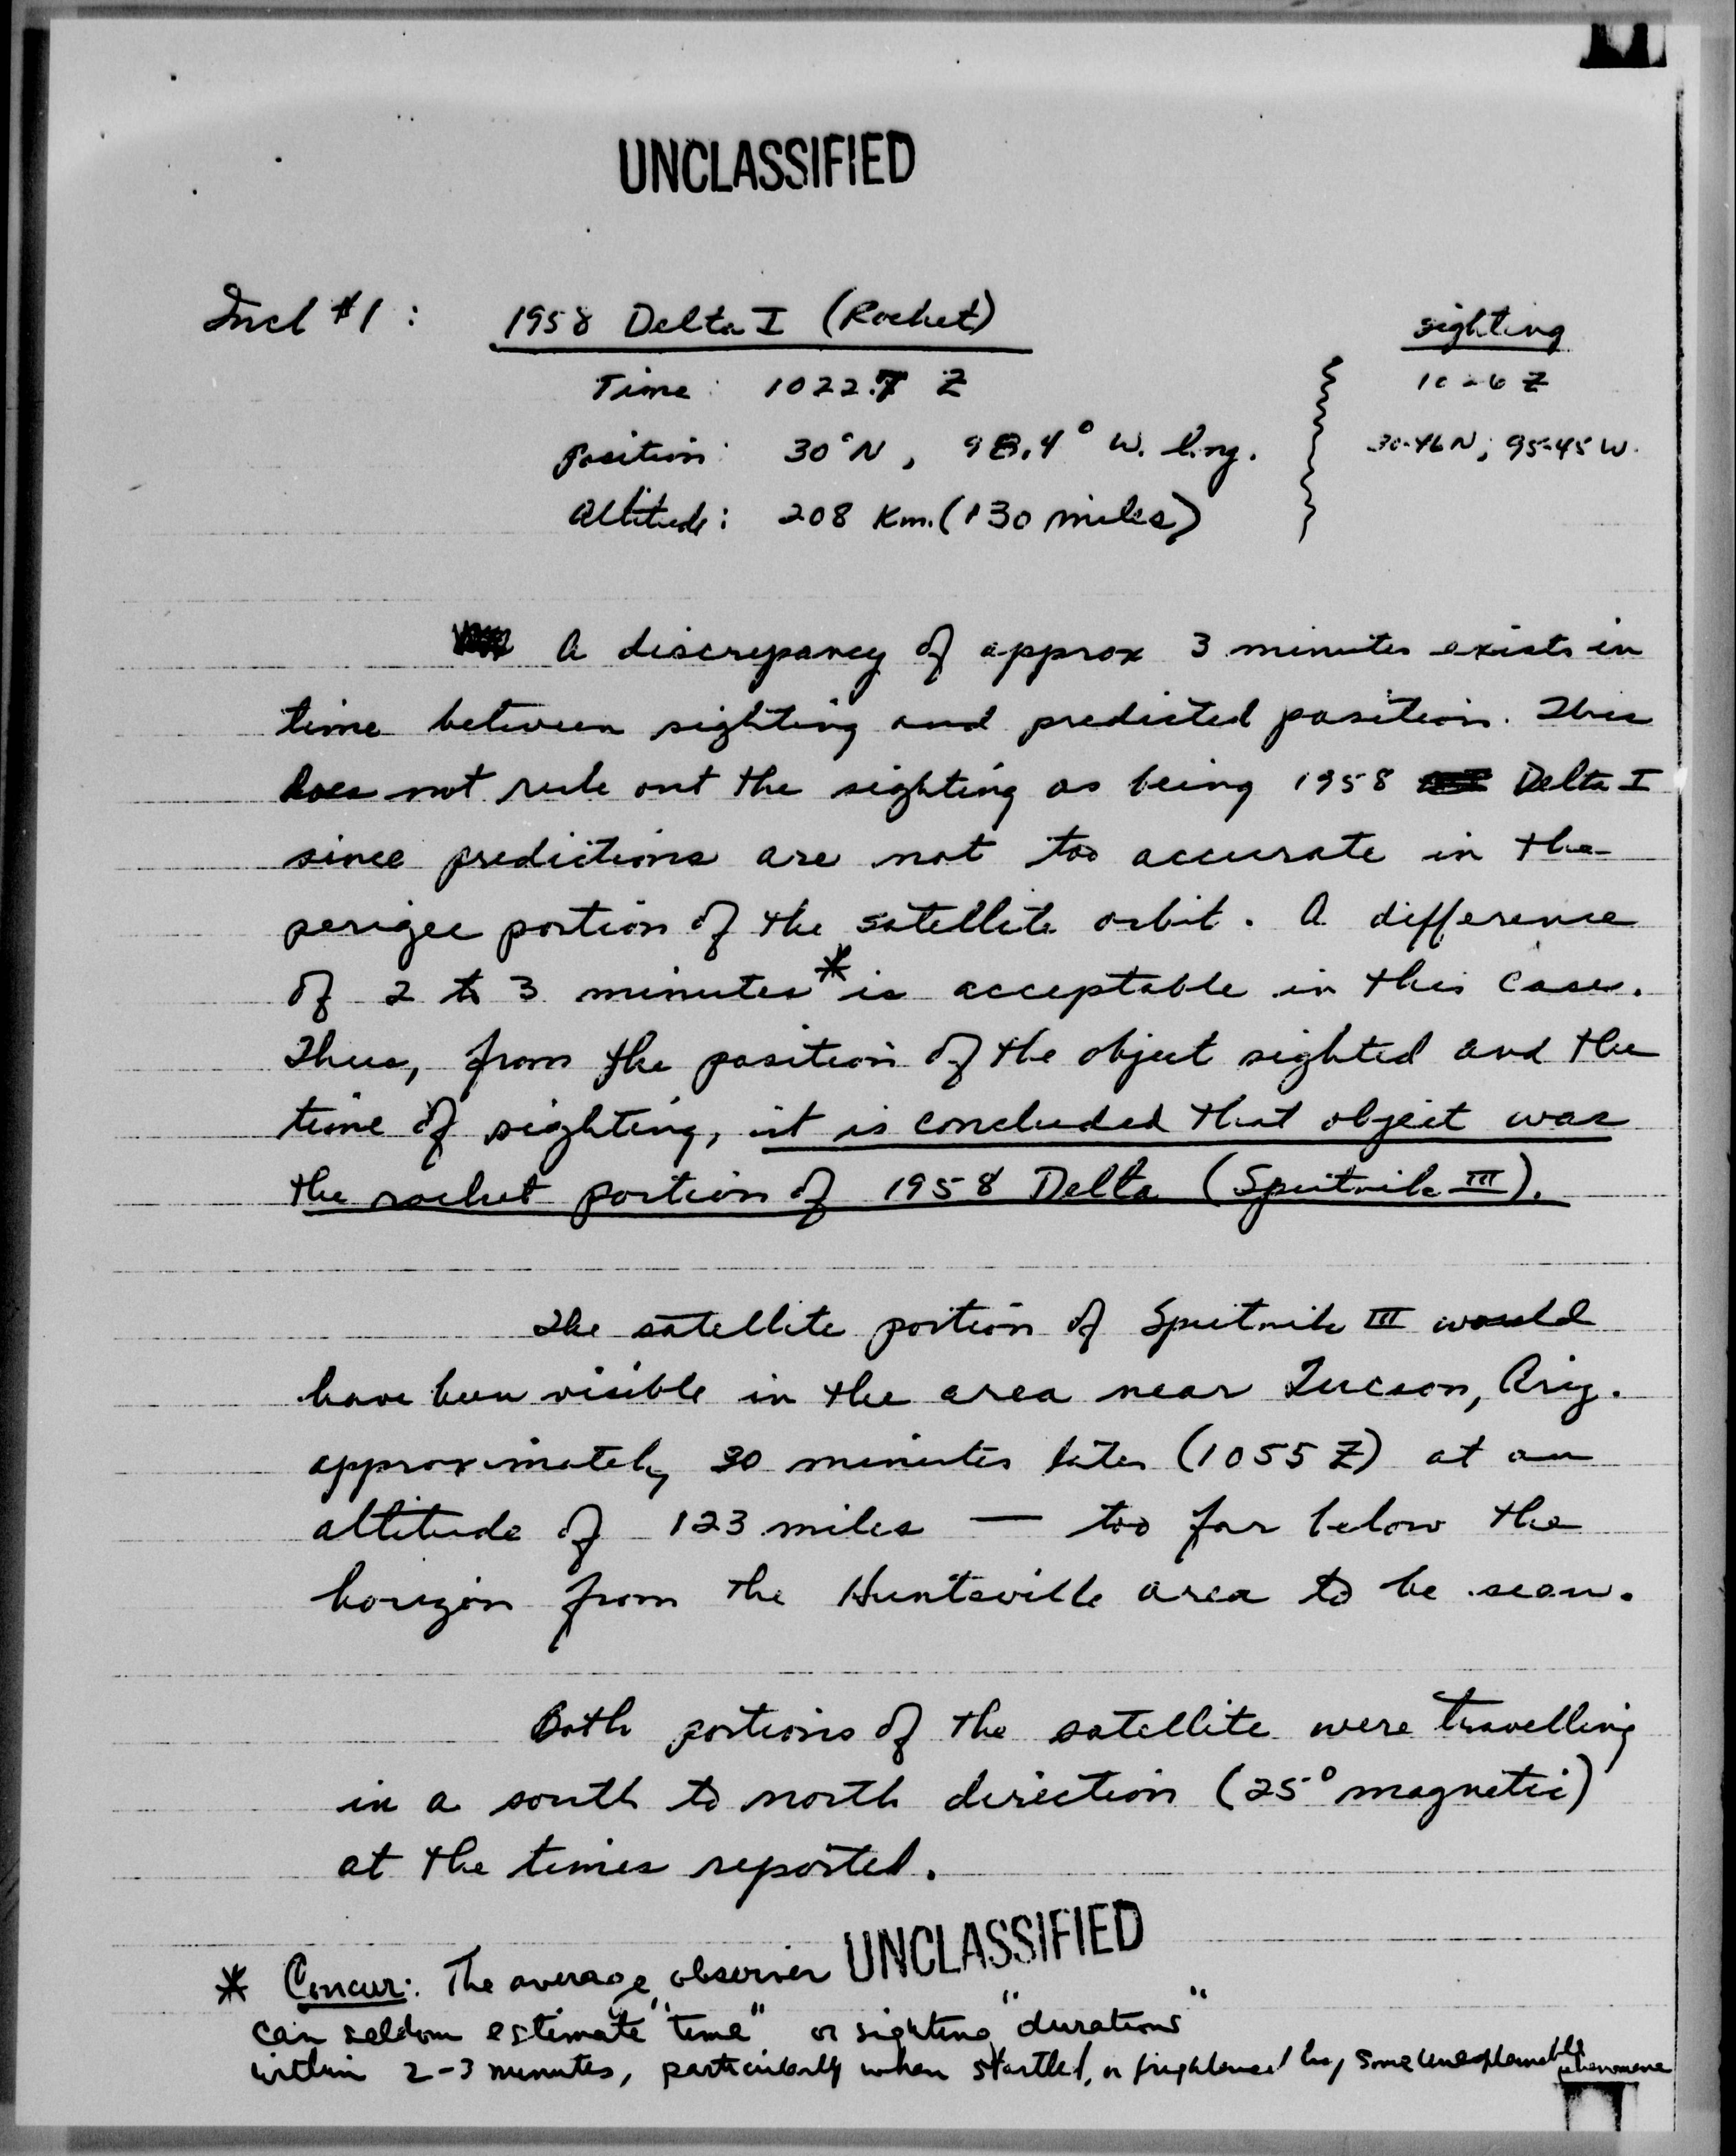 UNCLASSIFIED
Incl #1: 1958 Delta I (Rocket) sighting
Time: 1022.7 Z 1026 Z
Position: 30°N, 98.4° W. long. 30-46 N; 95-45 W.
Altitude: 208 Km. (130 miles)
A discrepancy of approx 3 minutes exists in
time between sighting and predicted position. This
does not rule out the sighting as being 1958 Delta I
since predictions are not too accurate in the
perigee portion of the satellite orbit. A difference
of 2 to 3 minutes * is acceptable in this case.
Thus, from the position of the object sighted and the
time of sighting, it is concluded that object was
the rocket portion of 1958 Delta (Sputnik III).
The satellite portion of Sputnik III would
have been visible in the area near Tucson, Ariz.
approximately 30 minutes later (1055 Z) at an
altitude of 123 miles — too far below the
horizon from the Huntsville area to be seen.
Both portions of the satellite were travelling
in a south to north direction (25° magnetic)
at the times reported.
UNCLASSIFIED
* Concur: The average observer
can seldom estimate "time" or sighting "durations"
within 2-3 minutes, particularly when startled, or frightened by some unexplainable phenomena